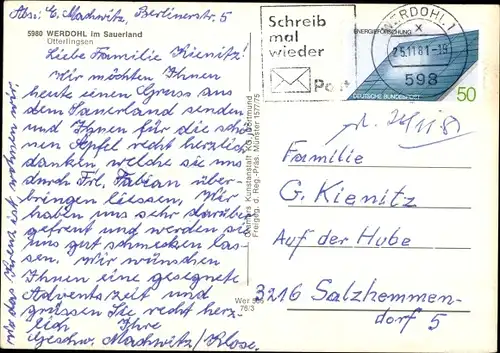 Abs: E. Machwitz, Berlinerstr. 5
5980 WERDOHL im Sauerland
Ütterlingsen
Liebe Familie Kienitz!
Wir möchten Ihnen
heute einen Gruss aus
dem Sauerland senden
und Ihnen für die schö-
nen Äpfel recht herzlich
danken, welche sie uns
durch Frl. Fabian über-
bringen liessen. Wir
haben uns sehr darüber
gefreut und werden sie
uns gut schmecken las-
sen. Wir wünschen
Ihnen eine gesegnete
Adventszeit und
grüssen Sie recht herz-
lich Ihre
Geschw. Machwitz/Klose.
wo das Kreuz ist wohnen wir.
Cramers Kunstanstalt KG, Dortmund
Freigeg. d. Reg.-Präs. Münster 1577/75
Wer 566
78/3
Schreib
mal
wieder
Post
WERDOHL 1
25.11.81-19
598
ENERGIEFORSCHUNG
DEUTSCHE BUNDESPOST
50
Familie
G. Kienitz
Auf der Hube
3216 Salzhemmen-
dorf 5